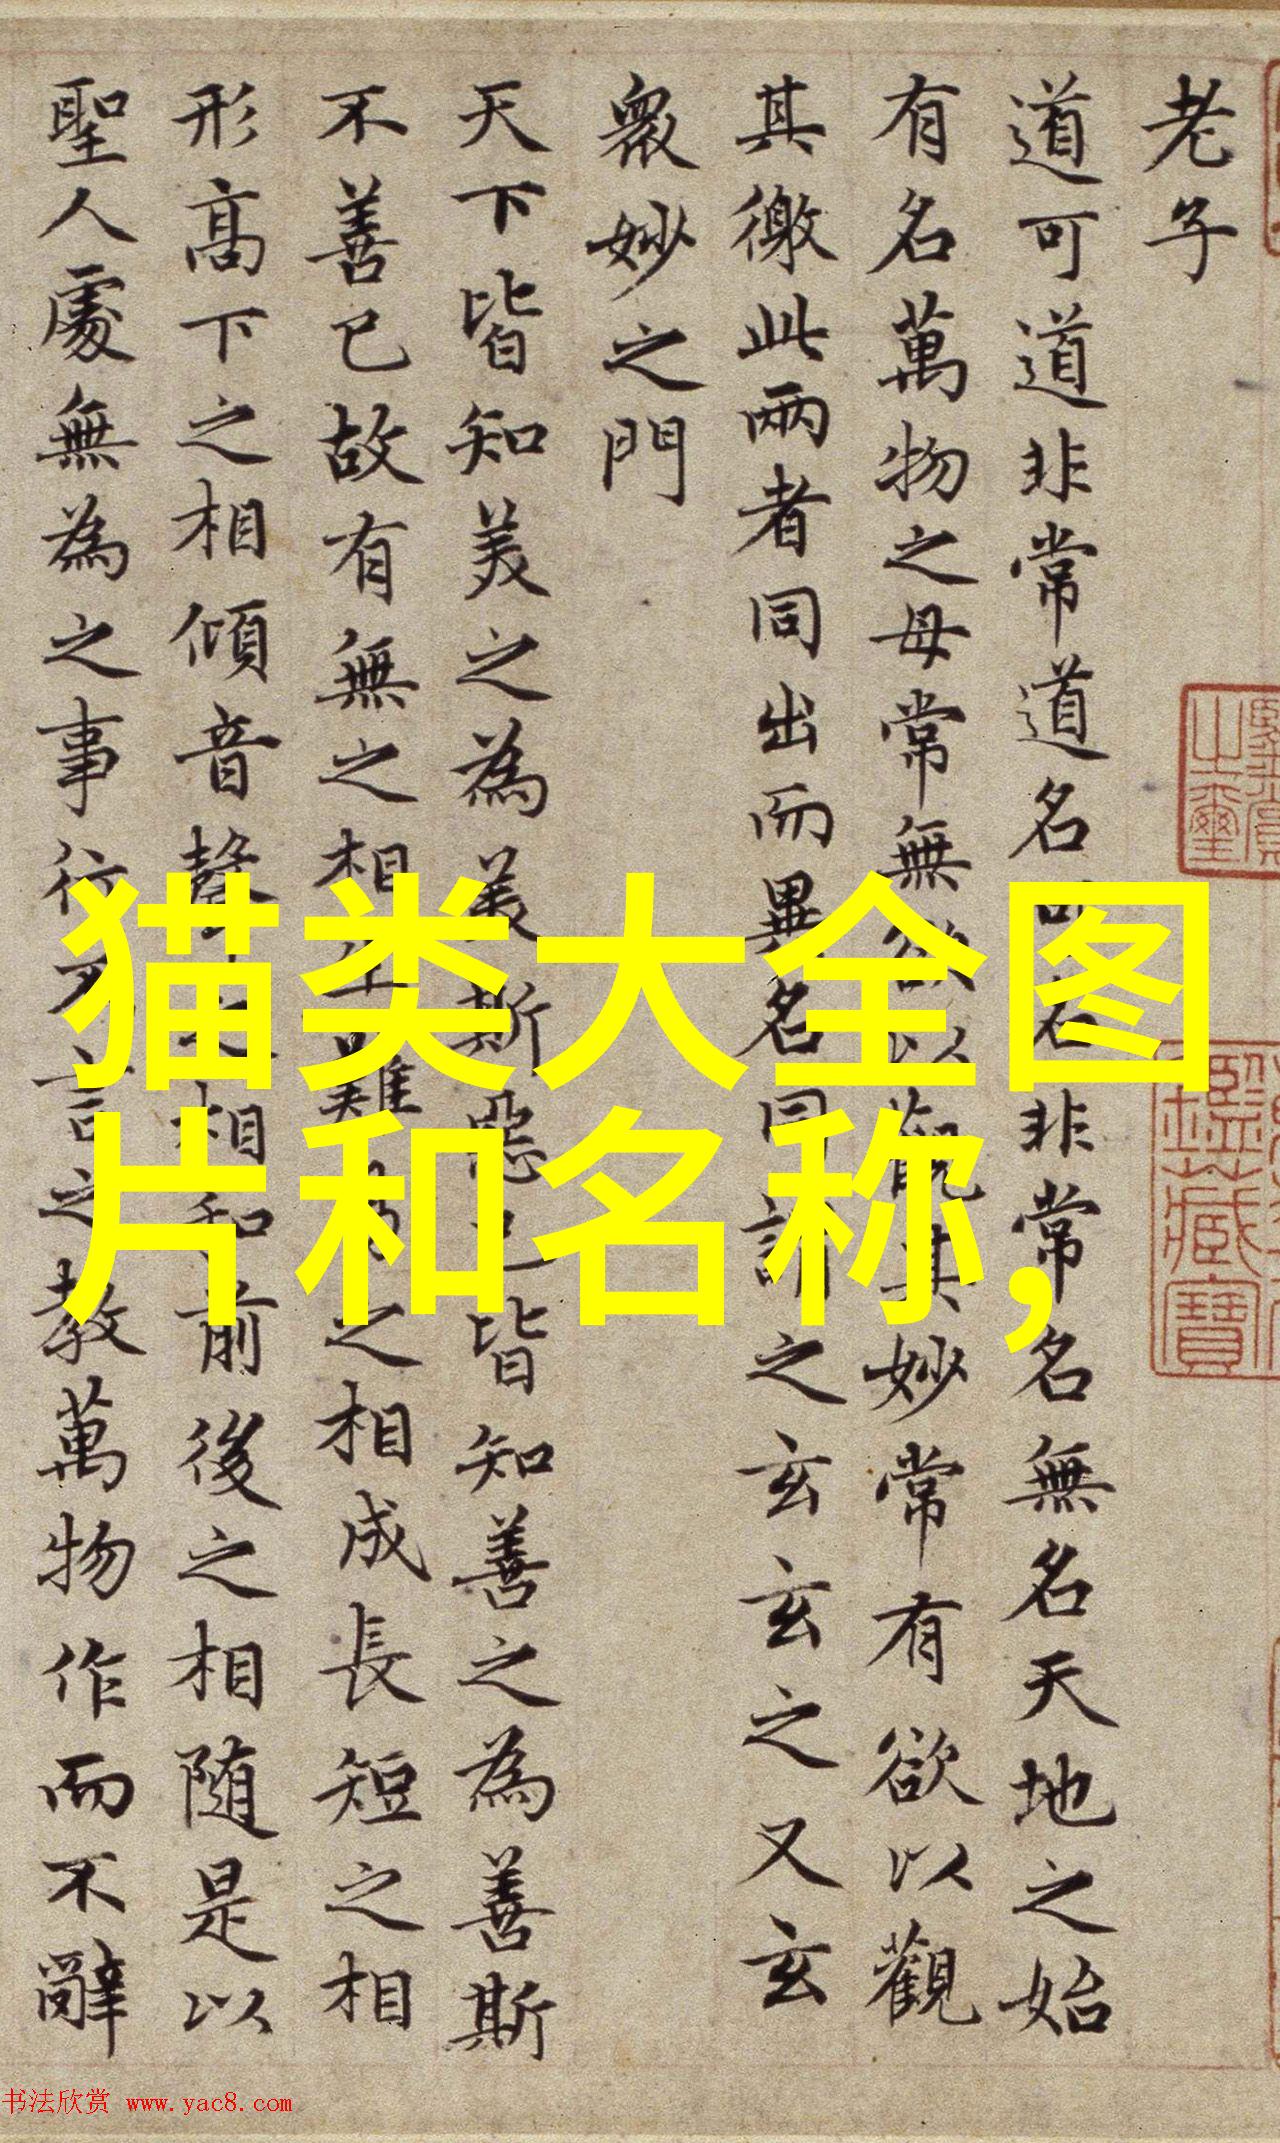 老子
道可道非常道名可名非常名無名天地之始
有名萬物之母常無欲以觀其妙常有欲以觀
其徼此兩者同出而異名同謂之玄玄之又玄
衆妙之門
天下皆知美之為美斯惡已皆知善之為善斯
不善已故有無之相生難易之相成長短之相
形高下之相傾音聲之相和前後之相随是以
聖人處無為之事行不言之教萬物作而不辭
猫类大全图
片和名称,
书法欣赏 www.yac8.com